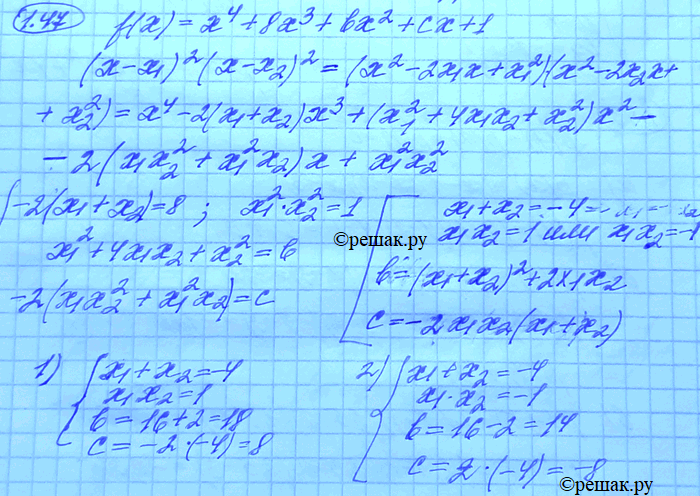 1.47 f(x) = x⁴ + 8x³ + bx² + cx + 1
(x-x₁)²(x-x₂)² = (x² - 2x₁x + x₁²)(x² - 2x₂x +
+ x₂²) = x⁴ - 2(x₁+x₂)x³ + (x₁² + 4x₁x₂ + x₂²)x² -
- 2(x₁x₂² + x₁²x₂)x + x₁²x₂²
-2(x₁ + x₂) = 8 ; x₁² · x₂² = 1
x₁² + 4x₁x₂ + x₂² = b
-2(x₁x₂² + x₁²x₂) = c
x₁ + x₂ = -4
x₁x₂ = 1 или x₁x₂ = -1
b = (x₁+x₂)² + 2x₁x₂
c = -2x₁x₂(x₁+x₂)
©решак.ру
1) { x₁ + x₂ = -4
x₁x₂ = 1
b = 16+2 = 18
c = -2·(-4) = 8
2) { x₁ + x₂ = -4
x₁·x₂ = -1
b = 16-2 = 14
c = 2·(-4) = -8
©решак.ру